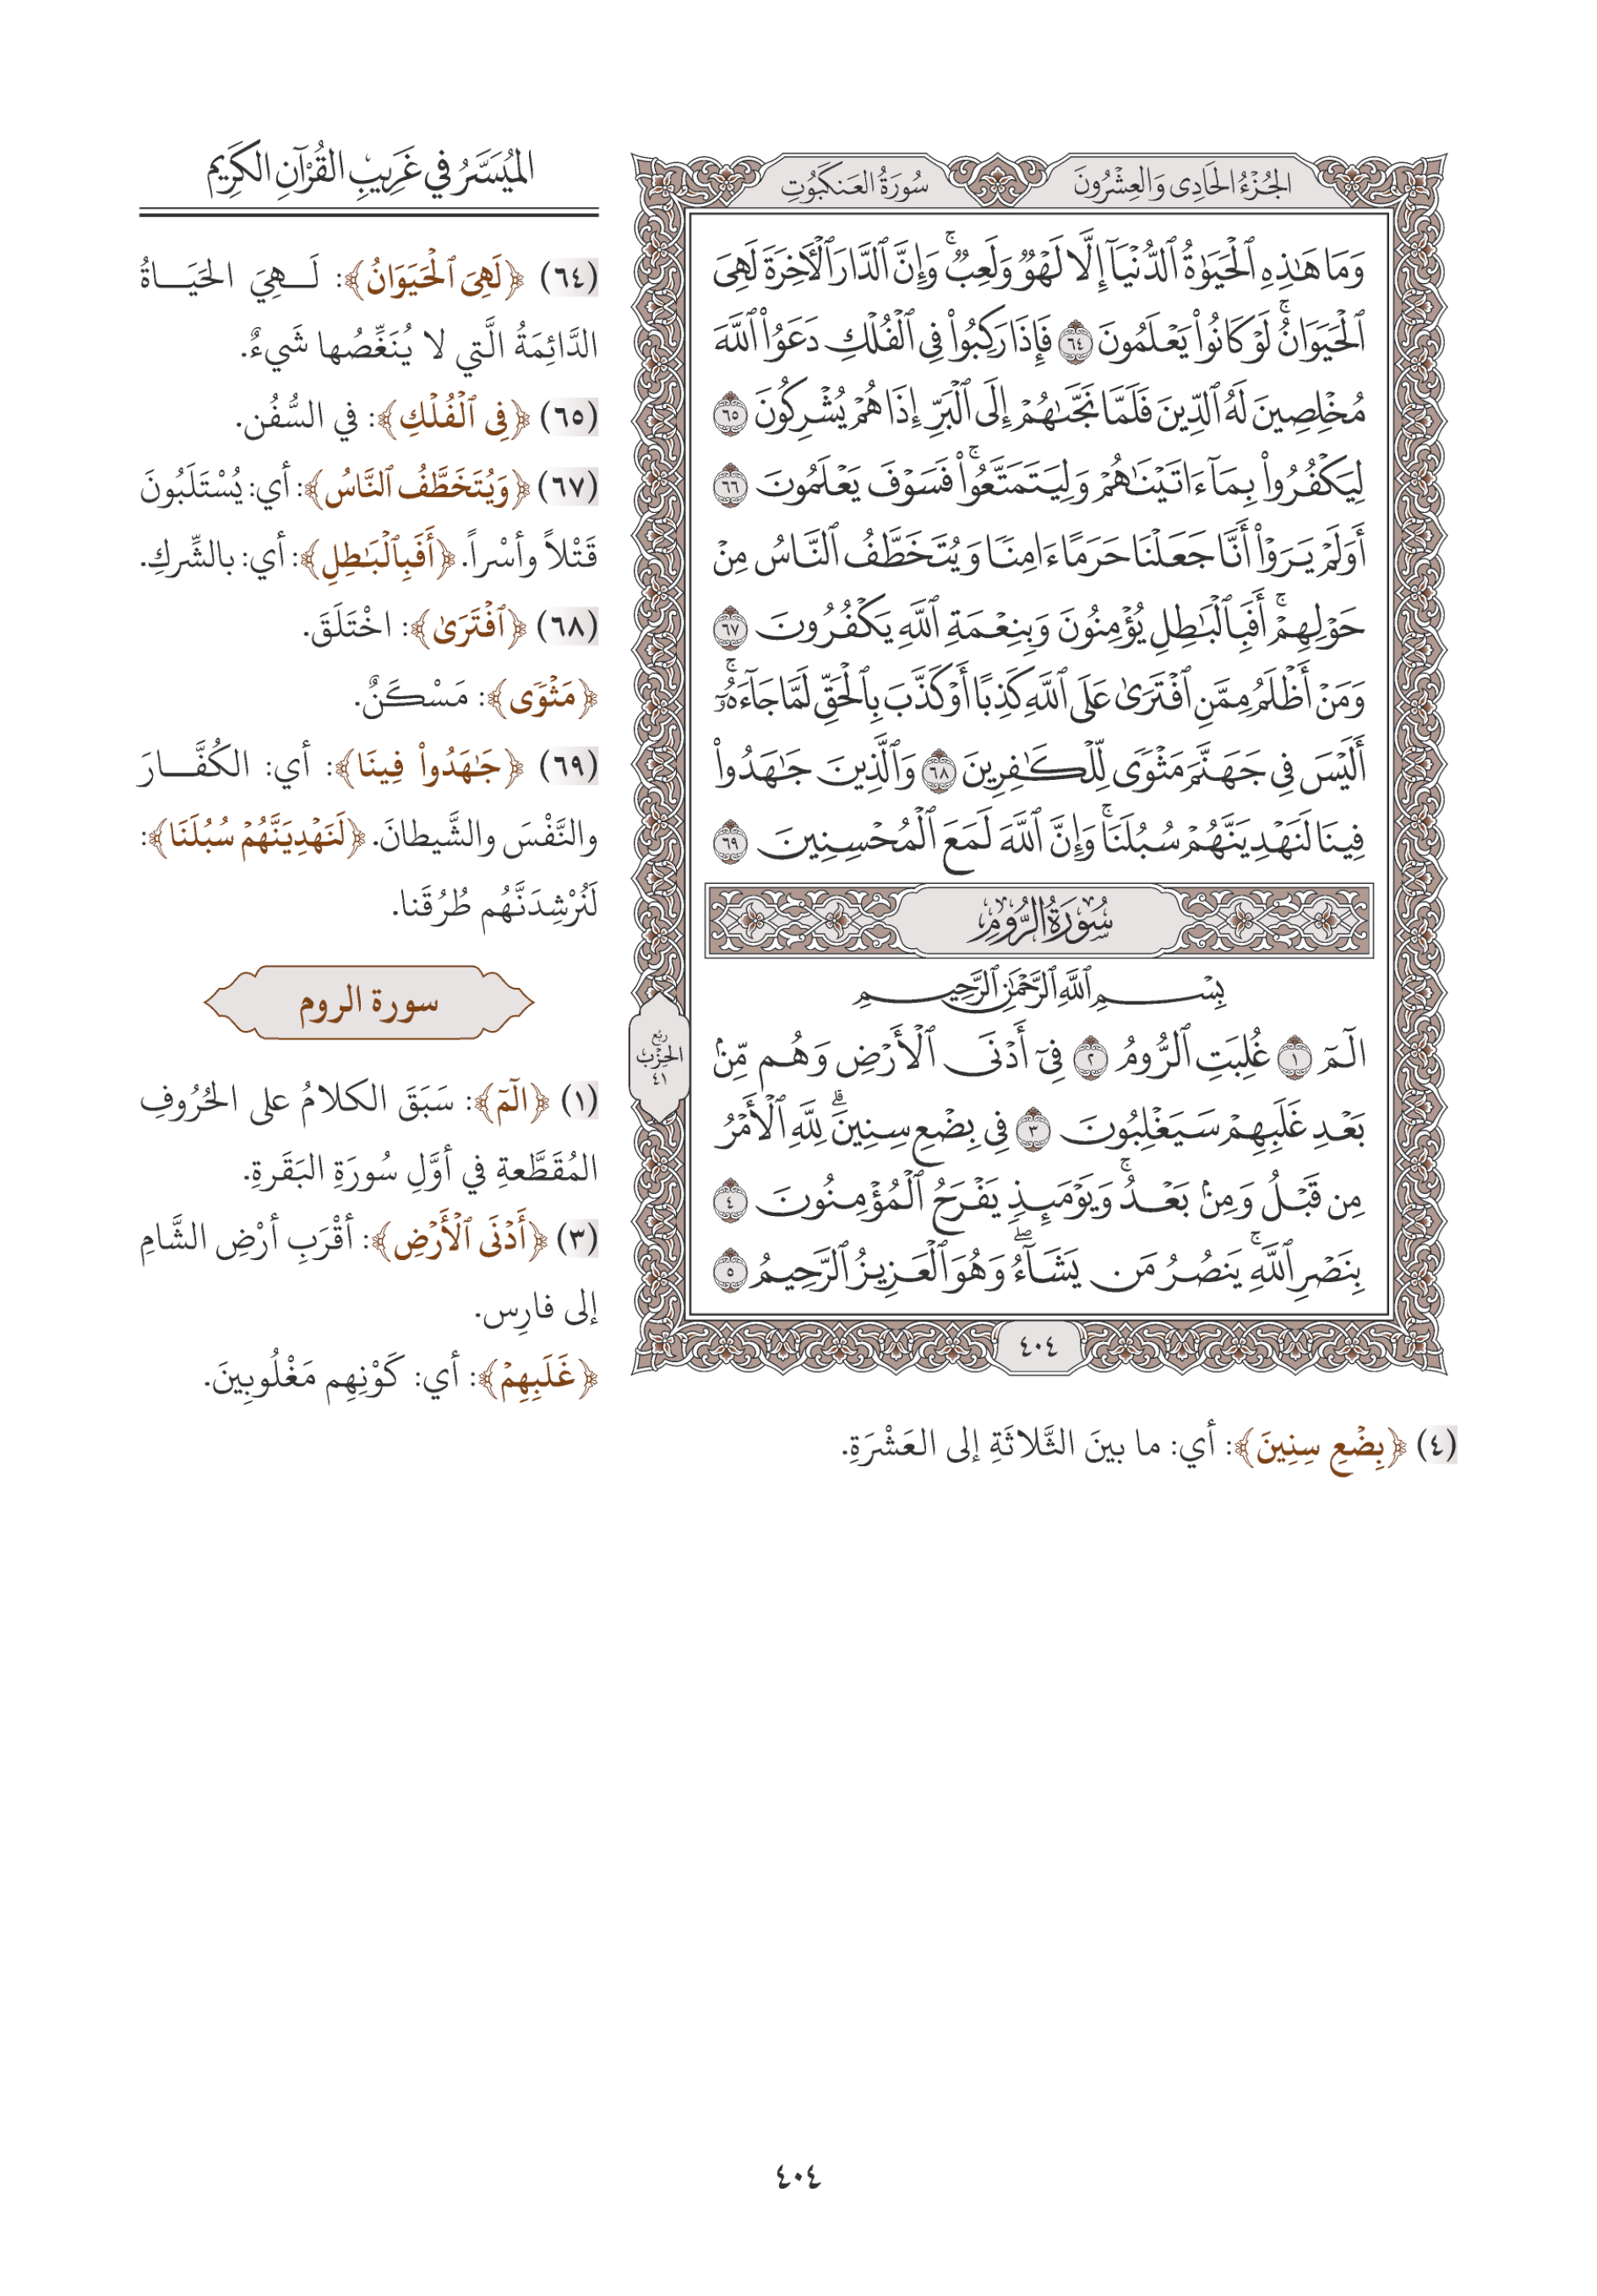 الجُزْءُ الحَادِى وَالعِشْرُونَ
سُورَةُ العَنكَبُوتِ
وَمَا هَٰذِهِ ٱلْحَيَوٰةُ ٱلدُّنْيَآ إِلَّا لَهْوٌ وَلَعِبٌ ۚ وَإِنَّ ٱلدَّارَ ٱلْأٓخِرَةَ لَهِىَ
ٱلْحَيَوَانُ ۚ لَوْ كَانُوا۟ يَعْلَمُونَ ٦٤ فَإِذَا رَكِبُوا۟ فِى ٱلْفُلْكِ دَعَوُا۟ ٱللَّهَ
مُخْلِصِينَ لَهُ ٱلدِّينَ فَلَمَّا نَجَّىٰهُمْ إِلَى ٱلْبَرِّ إِذَا هُمْ يُشْرِكُونَ ٦٥
لِيَكْفُرُوا۟ بِمَآ ءَاتَيْنَٰهُمْ وَلِيَتَمَتَّعُوا۟ ۚ فَسَوْفَ يَعْلَمُونَ ٦٦
أَوَلَمْ يَرَوْا۟ أَنَّا جَعَلْنَا حَرَمًا ءَامِنًا وَيُتَخَطَّفُ ٱلنَّاسُ مِنْ
حَوْلِهِمْ ۚ أَفَبِٱلْبَٰطِلِ يُؤْمِنُونَ وَبِنِعْمَةِ ٱللَّهِ يَكْفُرُونَ ٦٧
وَمَنْ أَظْلَمُ مِمَّنِ ٱفْتَرَىٰ عَلَى ٱللَّهِ كَذِبًا أَوْ كَذَّبَ بِٱلْحَقِّ لَمَّا جَآءَهُۥٓ ۚ
أَلَيْسَ فِى جَهَنَّمَ مَثْوًى لِّلْكَٰفِرِينَ ٦٨ وَٱلَّذِينَ جَٰهَدُوا۟
فِينَا لَنَهْدِيَنَّهُمْ سُبُلَنَا ۚ وَإِنَّ ٱللَّهَ لَمَعَ ٱلْمُحْسِنِينَ ٦٩
سُورَةُ الرُّومِ
بِسْمِ ٱللَّهِ ٱلرَّحْمَٰنِ ٱلرَّحِيمِ
الٓمٓ ١ غُلِبَتِ ٱلرُّومُ ٢ فِىٓ أَدْنَى ٱلْأَرْضِ وَهُم مِّنۢ
بَعْدِ غَلَبِهِمْ سَيَغْلِبُونَ ٣ فِى بِضْعِ سِنِينَ ۗ لِلَّهِ ٱلْأَمْرُ
مِن قَبْلُ وَمِنۢ بَعْدُ ۚ وَيَوْمَئِذٍ يَفْرَحُ ٱلْمُؤْمِنُونَ ٤
بِنَصْرِ ٱللَّهِ ۚ يَنصُرُ مَن يَشَآءُ ۖ وَهُوَ ٱلْعَزِيزُ ٱلرَّحِيمُ ٥
ربع
الحزب
٤١
٤٠٤
الميُسَّرُ في غَرِيبِ القُرْآنِ الكَرِيم
(٦٤) ﴿لَهِىَ ٱلْحَيَوَانُ﴾: لَـهِيَ الحَيَـاةُ
الدَّائِمَةُ الَّتي لا يُنَغِّصُها شَيءٌ.
(٦٥) ﴿فِى ٱلْفُلْكِ﴾: في السُّفُن.
(٦٧) ﴿وَيُتَخَطَّفُ ٱلنَّاسُ﴾: أي: يُسْتَلَبُونَ
قَتْلاً وأسْراً. ﴿أَفَبِٱلْبَٰطِلِ﴾: أي: بالشِّركِ.
(٦٨) ﴿ٱفْتَرَىٰ﴾: اخْتَلَقَ.
﴿مَثْوًى﴾: مَسْكَنٌ.
(٦٩) ﴿جَٰهَدُوا۟ فِينَا﴾: أي: الكُفَّـارَ
والنَّفْسَ والشَّيطانَ. ﴿لَنَهْدِيَنَّهُمْ سُبُلَنَا﴾:
لَنُرْشِدَنَّهُم طُرُقَنا.
سورة الروم
(١) ﴿الٓمٓ﴾: سَبَقَ الكلامُ على الحُرُوفِ
المُقَطَّعةِ في أوَّلِ سُورَةِ البَقَرةِ.
(٣) ﴿أَدْنَى ٱلْأَرْضِ﴾: أقْرَبِ أرْضِ الشَّامِ
إلى فارِس.
﴿غَلَبِهِمْ﴾: أي: كَوْنِهِم مَغْلُوبِينَ.
(٤) ﴿بِضْعِ سِنِينَ﴾: أي: ما بينَ الثَّلاثَةِ إلى العَشْرَةِ.
٤٠٤